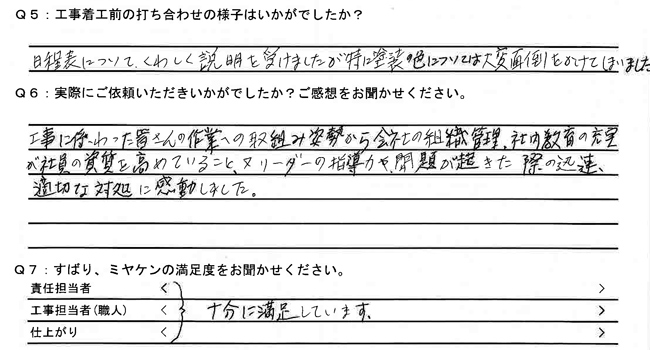 Q5：工事着工前の打ち合わせの様子はいかがでしたか？
日程表について、くわしく説明を受けましたが特に塗装の色については大変面倒をかけてしまいました
Q6：実際にご依頼いただきいかがでしたか？ご感想をお聞かせください。
工事に係わった皆さんの作業への取組み姿勢から会社の組織管理、社内教育の充実
が社員の資質を高めていること、又リーダーの指導力や、問題が起きた際の迅速、
適切な対処に感動しました。
Q7：ずばり、ミヤケンの満足度をお聞かせください。
責任担当者 < >
工事担当者(職人) < 十分に満足しています。 >
仕上がり < >